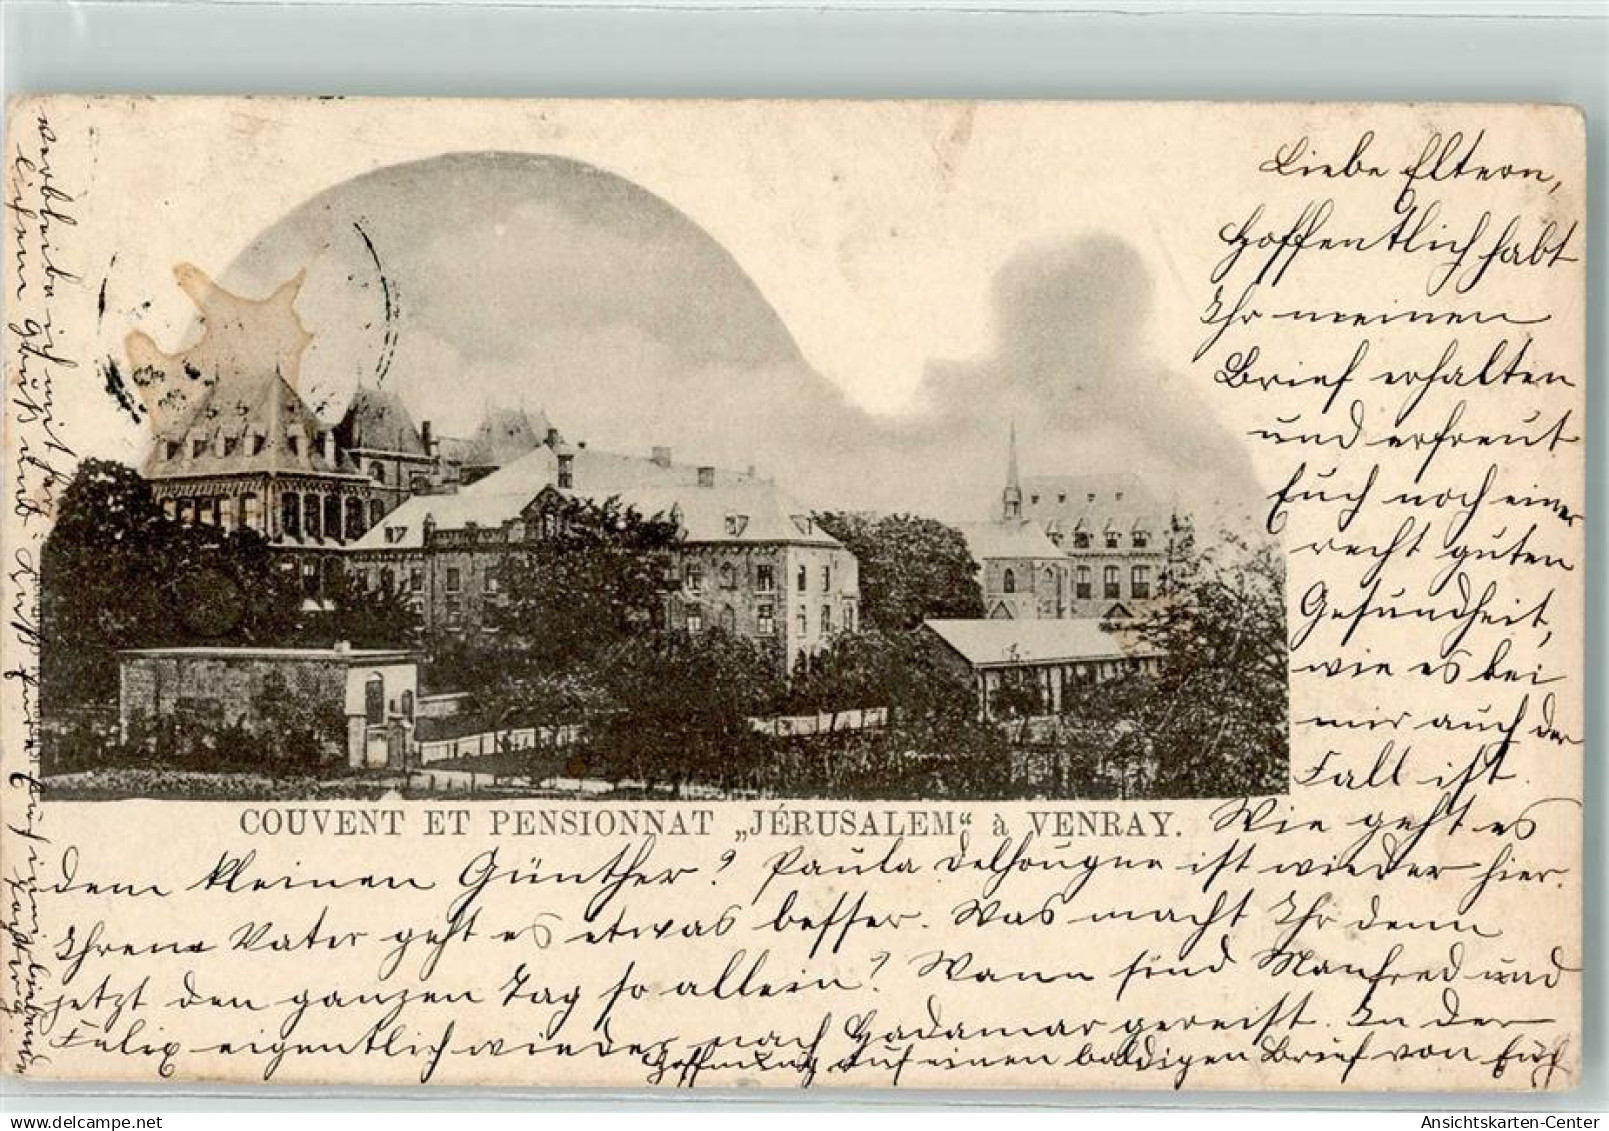 Liebe Eltern,
Hoffentlich habt
Ihr meinen
Brief erhalten
und erfreut
Euch noch einer
recht guten
Gesundheit,
wie es bei
mir auch der
Fall ist.
COUVENT ET PENSIONNAT „JÉRUSALEM“ à VENRAY.
Wie geht es
dem kleinen Günther? Paula Delhougne ist wieder hier.
Ihrem Vater geht es etwas besser. Was macht Ihr denn
jetzt den ganzen Tag so allein? Wann sind Manfred und
Felix eigentlich wieder nach Hadamar gereist. In der
Hoffnung auf einen baldigen Brief von Euch
verbleibe ich mit herz-
lichem Gruß und Kuß
Ansichtskarten-Center